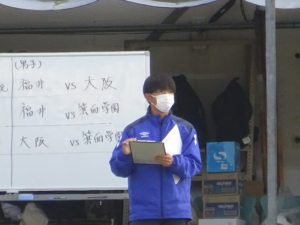 (男子)
福井 vs 大阪
福井 vs 箕面学園
大阪 vs 箕面学園